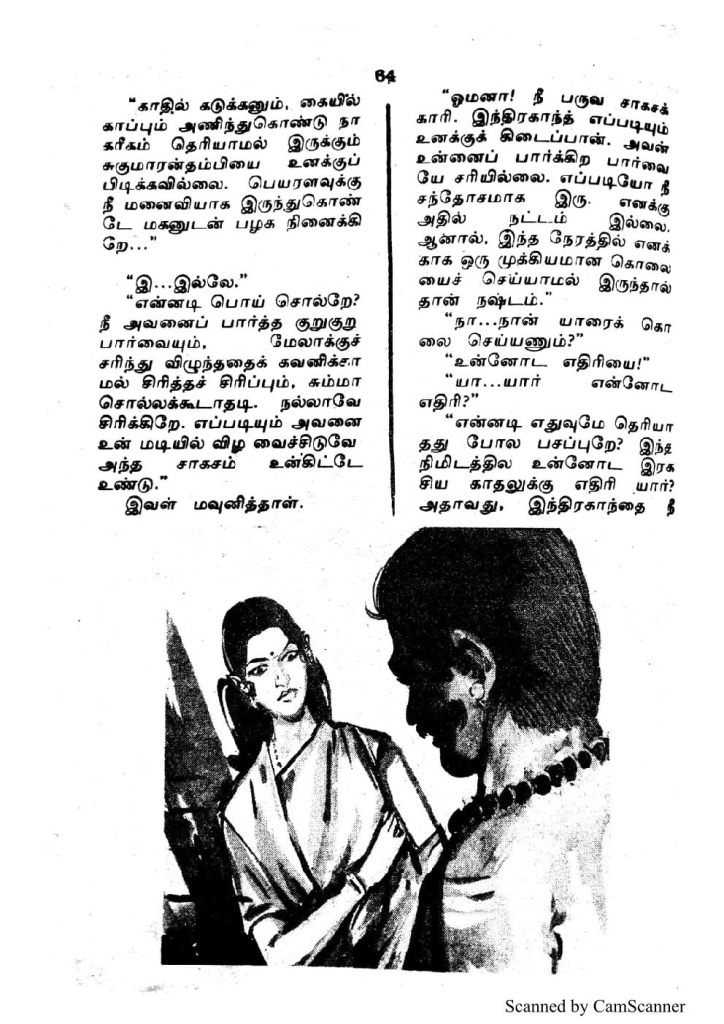 64
“காதில் கடுக்கனும், கையில்
காப்பும் அணிந்துகொண்டு நா
கரிகம் தெரியாமல் இருக்கும்
சுகுமாரன்தம்பியை உனக்குப்
பிடிக்கவில்லை. பெயரளவுக்கு
நீ மனைவியாக இருந்துகொண்
டே மகனுடன் பழக நினைக்கி
றே...”
“இ...இல்லே.”
“என்னடி பொய் சொல்றே?
நீ அவனைப் பார்த்த குறுகுறு
பார்வையும், மேலாக்குச்
சரிந்து விழுந்ததைக் கவனிக்கா
மல் சிரித்தச் சிரிப்பும், சும்மா
சொல்லக்கூடாதடி. நல்லாவே
சிரிக்கிறே. எப்படியும் அவனை
உன் மடியில் விழ வைச்சிடுவே
அந்த சாகசம் உன்கிட்டே
உண்டு.”
இவள் மவுனித்தாள்.
“ஓமனா! நீ பருவ சாகசக்
காரி. இந்திரகாந்த் எப்படியும்
உனக்குக் கிடைப்பான். அவன்
உன்னைப் பார்க்கிற பார்வை
யே சரியில்லை. எப்படியோ நீ
சந்தோசமாக இரு. எனக்கு
அதில் நட்டம் இல்லை.
ஆனால், இந்த நேரத்தில் எனக்
காக ஒரு முக்கியமான கொலை
யைச் செய்யாமல் இருந்தால்
தான் நஷ்டம்.”
“நா...நான் யாரைக் கொ
லை செய்யணும்?”
“உன்னோட எதிரியை!”
“யா...யார் என்னோட
எதிரி?”
“என்னடி எதுவுமே தெரியா
தது போல பசப்புறே? இந்த
நிமிடத்தில உன்னோட இரக
சிய காதலுக்கு எதிரி யார்?
அதாவது, இந்திரகாந்தை நீ
Scanned by CamScanner